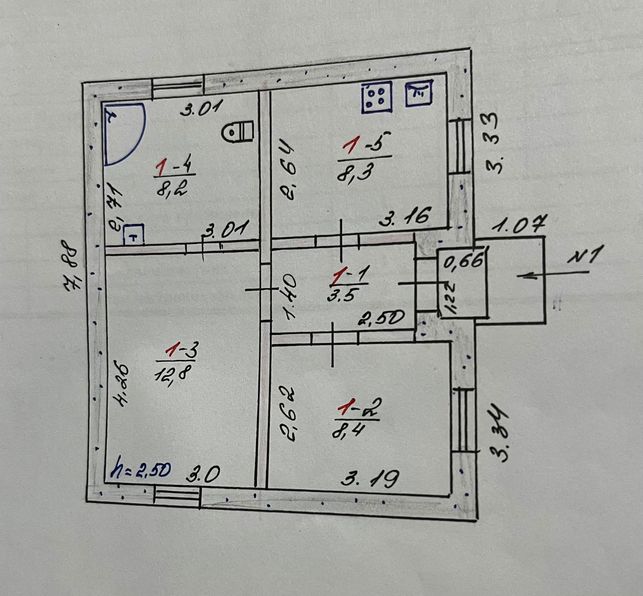 3.01
1-4
8,2
2,71
3.01
2,64
1-5
8,3
3.16
3.33
1.07
N1
0,66
1,22
7,88
1-1
3.5
1.40
2,50
1-3
12,8
4.26
h=2,50
3.0
2,62
1-2
8,4
3.19
3.34